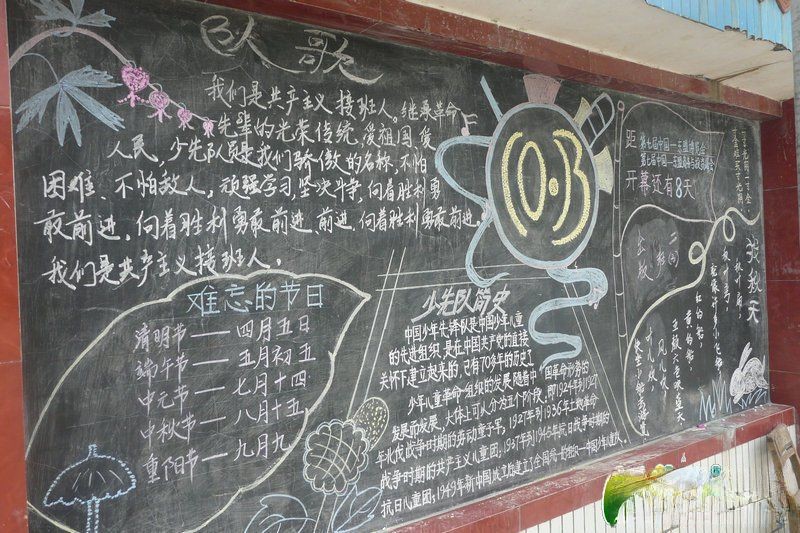 队歌
我们是共产主义接班人。继承革命
先辈的光荣传统,爱祖国,爱
人民,少先队员是我们骄傲的名称,不怕
困难、不怕敌人,顽强学习,坚决斗争,向着胜利勇
敢前进,向着胜利勇敢前进,前进,向着胜利勇敢前进。
我们是共产主义接班人。
难忘的节日
清明节——四月五日
端午节——五月初五
中元节——七月十四
中秋节——八月十五
重阳节——九月九
少先队简史
中国少年先锋队是中国少年儿童
的先进组织,是在中国共产党的直接
关怀下建立起来的,已有70多年的历史了
少年儿童革命组织的发展随着中国革命形势的
发展而发展,大体上可以分为五个阶段,即1924年到1927
年北伐战争时期的劳动童子军,1927年到1936年土地革命
战争时期的共产主义儿童团;1937年到1945年抗日战争时期的
抗日儿童团;1949年新中国成立后建立了全国统一的组织—中国少年儿童队。
10.13
距
第七届中国—东盟博览会
第七届中国—东盟商务与投资峰会
开幕还有8天
三(4)
找秋天